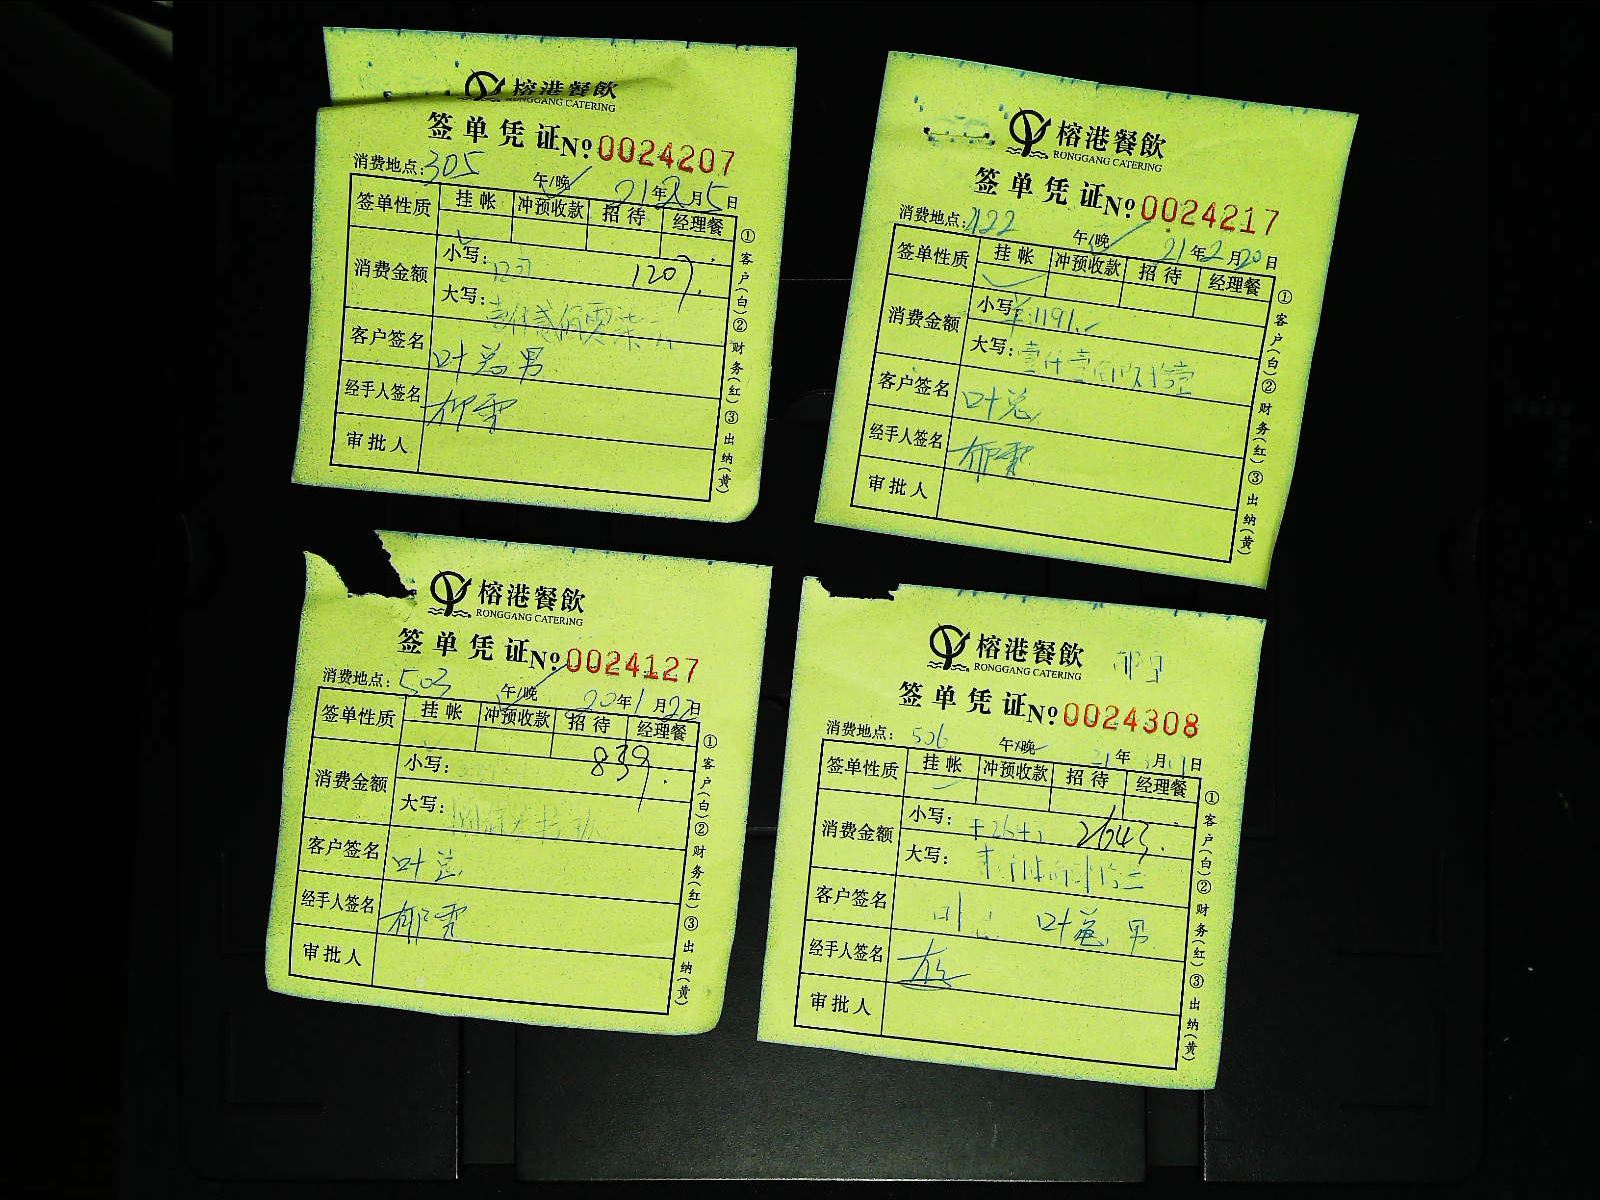 榕港餐飲
RONGGANG CATERING
签单凭证 Nº 0024207
消费地点: 305 午/晚 21年2月5日
签单性质 挂帐 冲预收款 招待 经理餐
消费金额 小写: 1207 1207.
大写: 壹仟贰佰零柒元
客户签名 叶总 男
经手人签名
审批人
①客户(白)②财务(红)③出纳(黄)
榕港餐飲
RONGGANG CATERING
签单凭证 Nº 0024217
消费地点: 午/晚 21年2月20日
签单性质 挂帐 冲预收款 招待 经理餐
消费金额 小写: ¥:1191.-
大写: 壹仟壹佰玖拾壹
客户签名 叶总
经手人签名
审批人
①客户(白)②财务(红)③出纳(黄)
榕港餐飲
RONGGANG CATERING
签单凭证 Nº 0024127
消费地点: 503 午/晚 20年1月22日
签单性质 挂帐 冲预收款 招待 经理餐
消费金额 小写: 839.
大写:
客户签名 叶总
经手人签名
审批人
①客户(白)②财务(红)③出纳(黄)
榕港餐飲
RONGGANG CATERING
签单凭证 Nº 0024308
消费地点: 506 午/晚 21年 月11日
签单性质 挂帐 冲预收款 招待 经理餐
消费金额 小写: 2643.
大写:
客户签名 叶总 男
经手人签名
审批人
①客户(白)②财务(红)③出纳(黄)